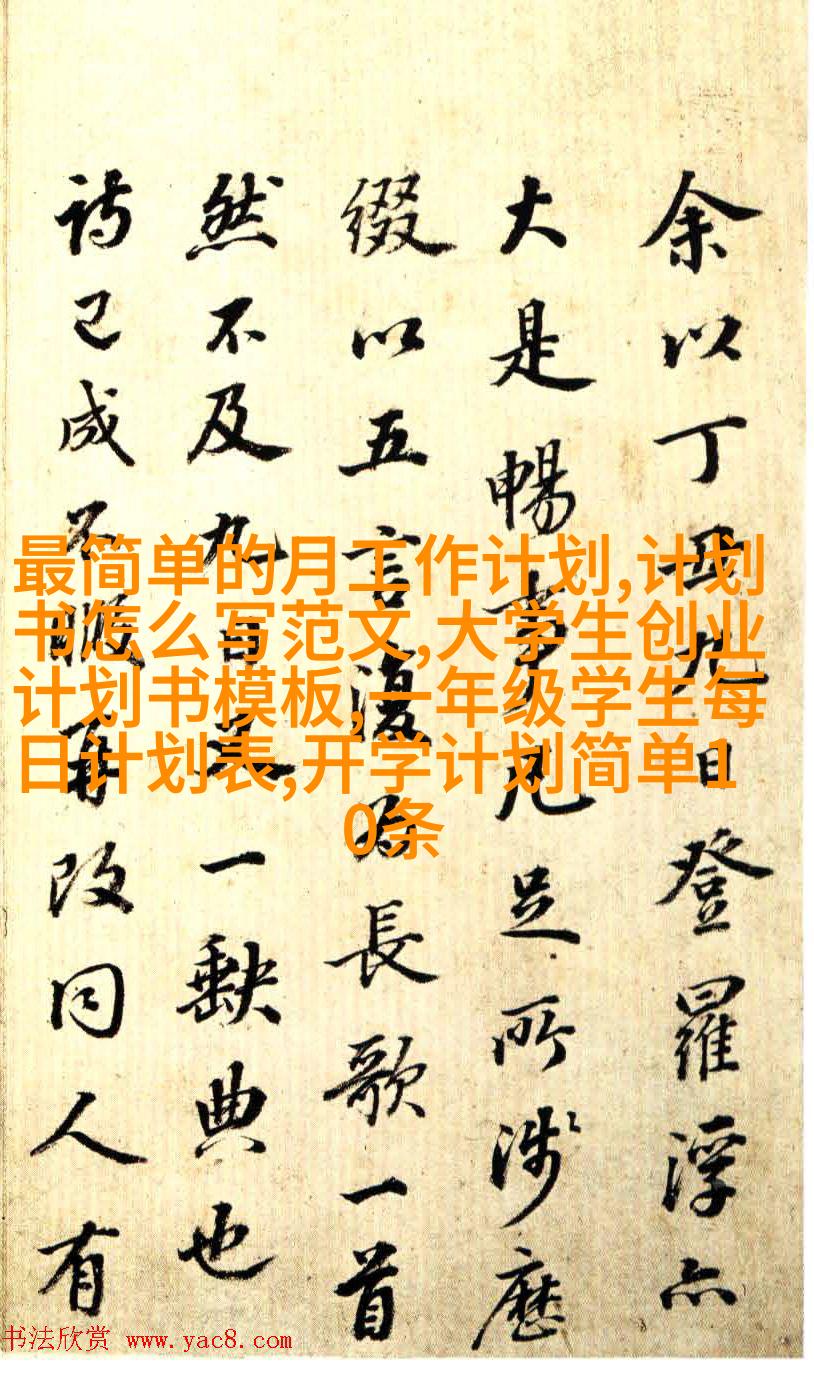 余以丁丑九日登羅浮亦
大是暢事凡足所涉歷
綴以五言復為長歌一首
然不及九日一缺典也
詩已成不暇再改同人有
最简单的月工作计划,计划
书怎么写范文,大学生创业
计划书模板,一年级学生每
日计划表,开学计划简单1
0条
书法欣赏 www.yac8.com